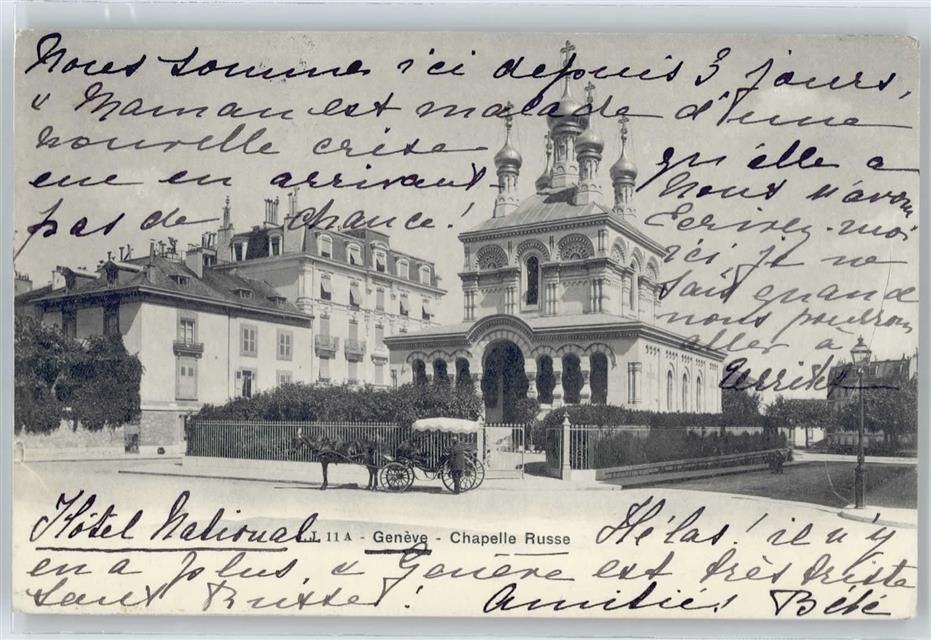 Nous sommes ici depuis 3 jours,
" Maman est malade d'une
nouvelle crise qu'elle a
eue en arrivant. Nous n'avons
pas de chance! Écrivez-moi
ici je ne
sais quand
nous pourrons
aller à
Hôtel National
J.J. 11 A - Genève - Chapelle Russe
Hélas! il n'y
en a plus, & Genève est très triste
sans Russes! Amitiés! Bébé